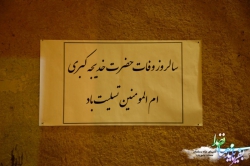 سالروز وفات حضرت خدیجه کبری
ام المومنین تسلیت باد